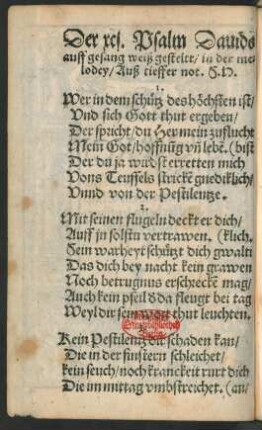 Der xcj. Psalm Dauids
auff gesang weiß gestelet/ in der me-
lodey/ Auß tieffer not. H. V.
1.
Wer in dem schütz des höchsten ist/
Vnd sich Gott thut ergeben/
Der spricht/ du Her mein zuflucht
Mein Got/ hoffnũg vñ lebẽ. (bist
Der du ja wirdst erretten mich
Vons Teuffels stricke gnediklich/
Vnnd von der Pestilentze.
2.
Mit seinen flugeln deckt er dich/
Auff jn solstu vertrawen. (klich.
Sein warheyt schützt dich gwalti
Das dich bey nacht kein grawen
Noch betrugnus erschrecke mag/
Auch kein pfeil ď da fleugt bei tag
Weyl dir sein wort thut leuchten.
Kein Pestilentz dir schaden kan/
Die in der finstern schleichet/
kein seuch/ noch kranckeit rurt dich
Die im mittag vmbstreichet. (an/